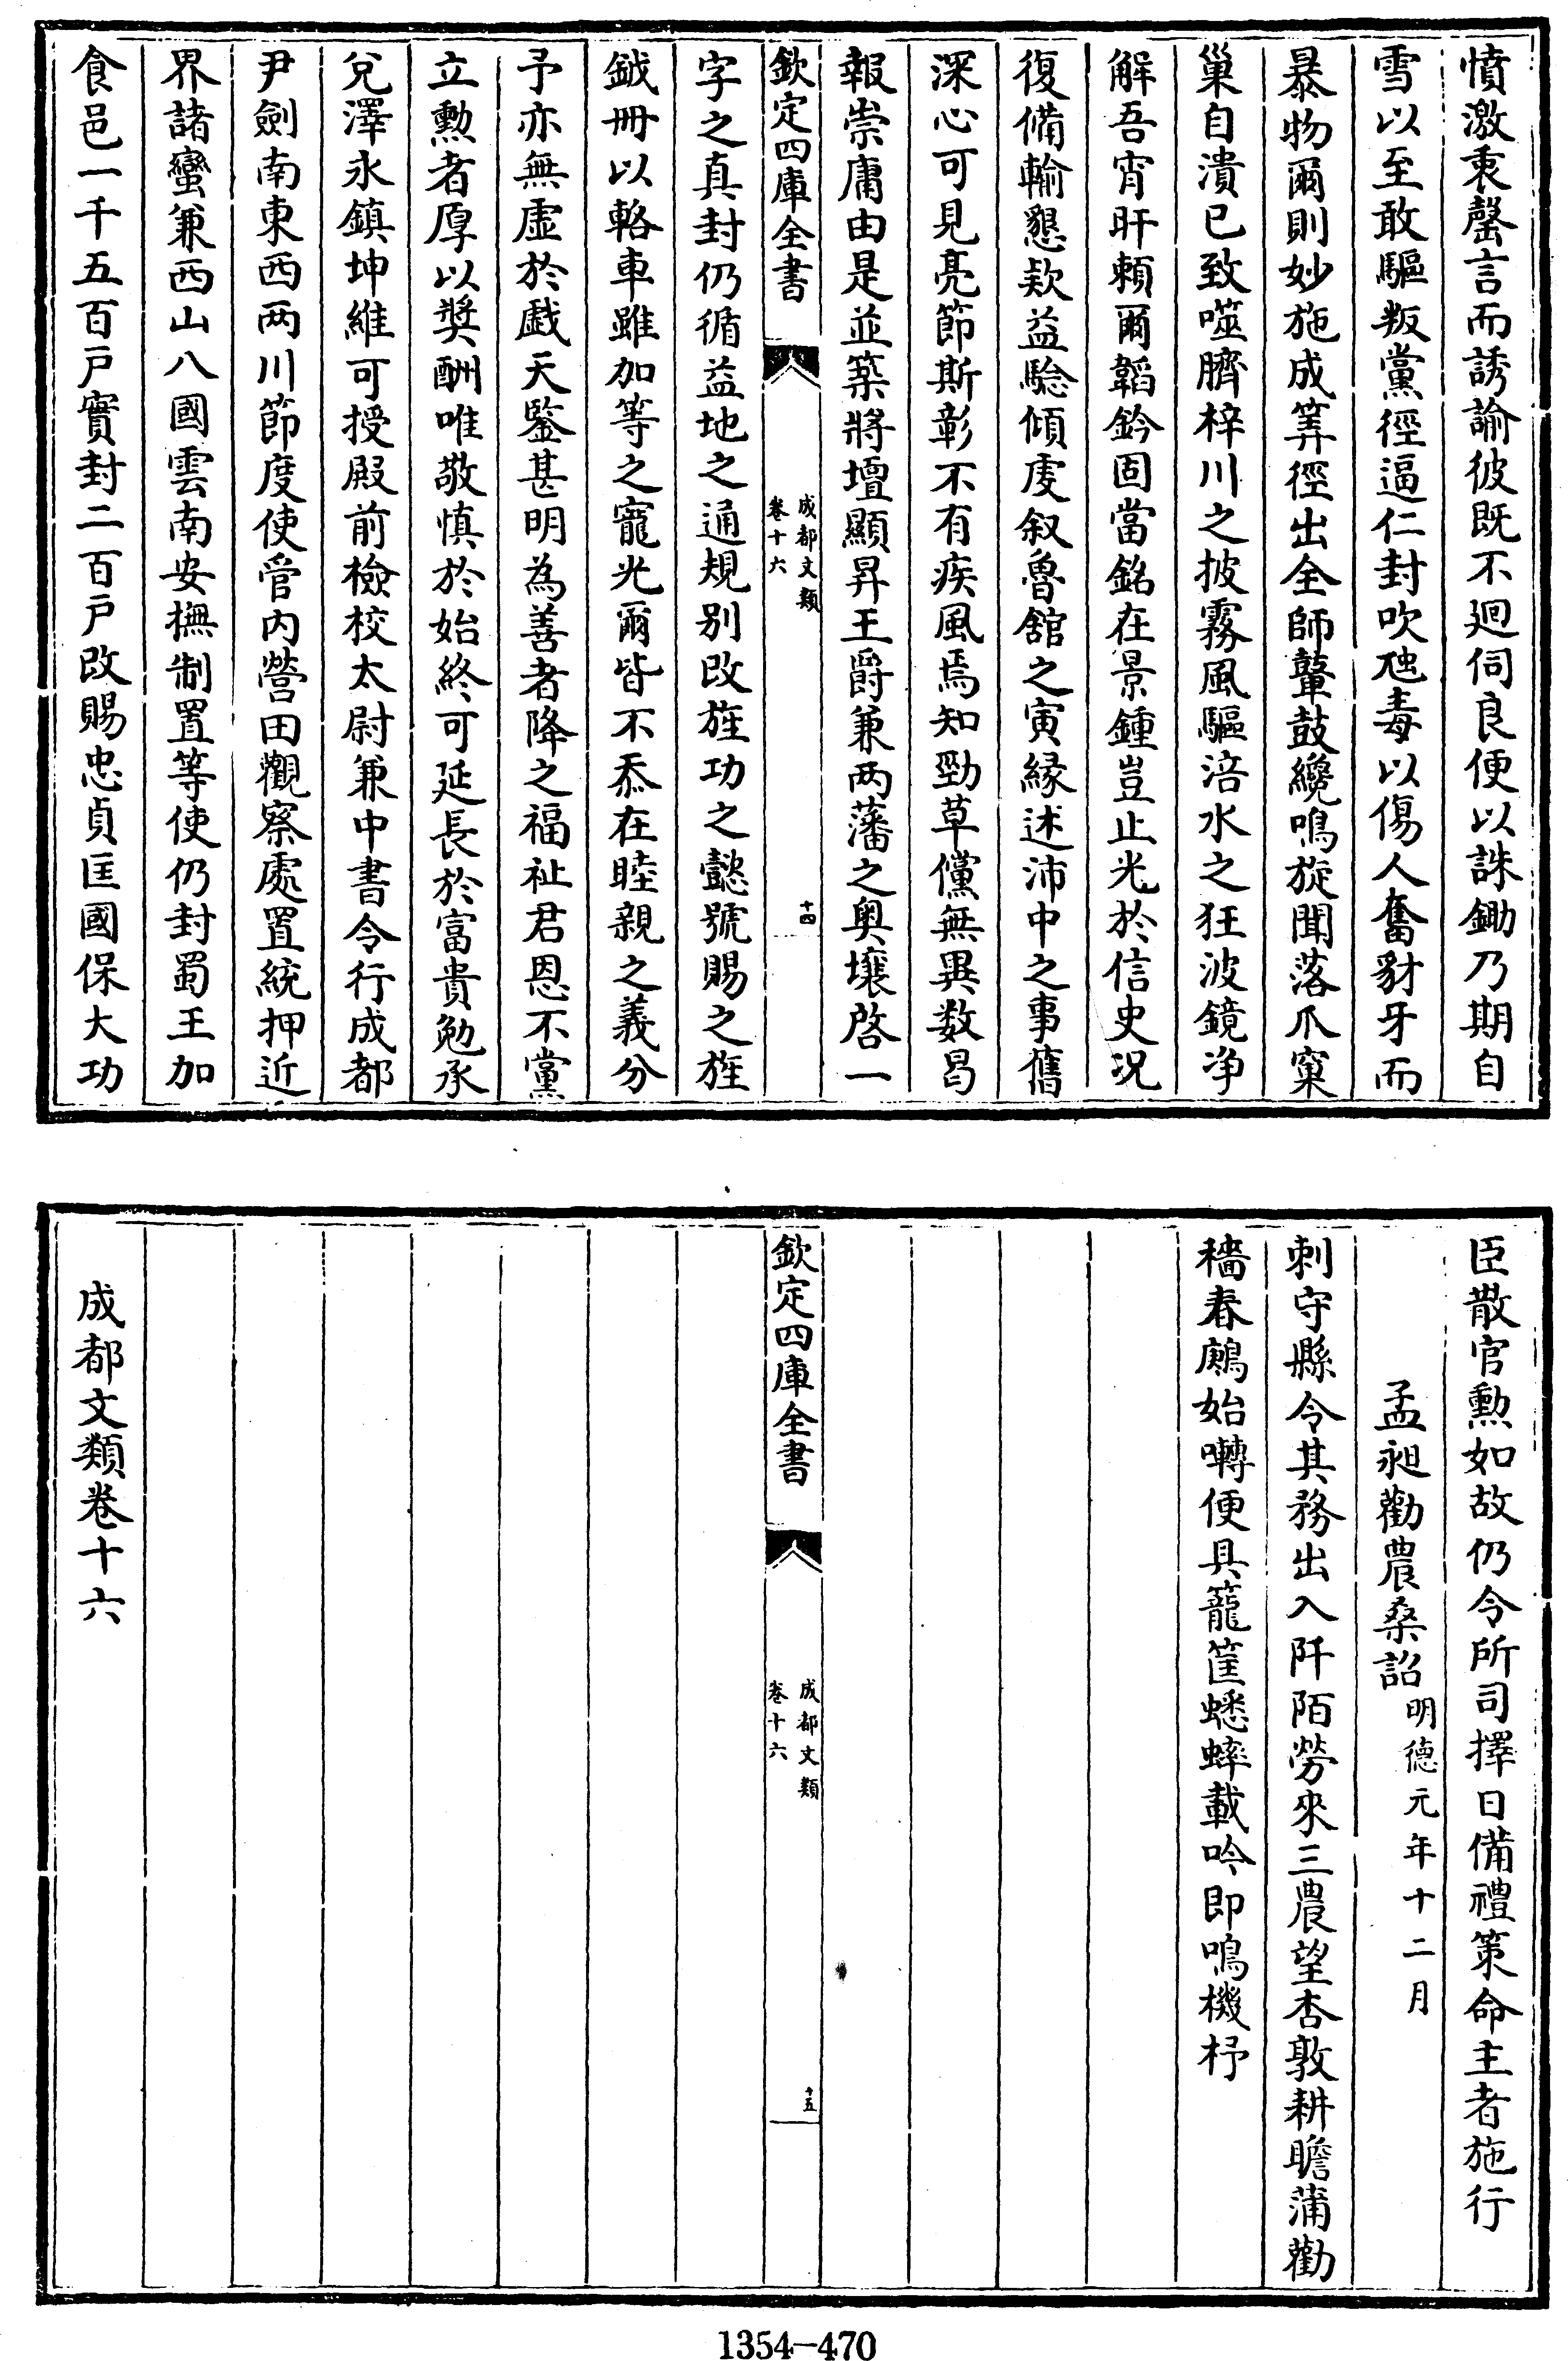 憤激衷罄言而誘諭彼既不廻伺良便以誅鋤乃期自
雪以至敢驅叛黨徑逼仁封吹虺毒以傷人奮豺牙而
暴物爾則妙施成筭徑出全師鼙鼓纔鳴旋聞落爪窠
巢自潰已致噬臍梓川之披霧風驅涪水之狂波鏡净
解吾宵旰頼爾韜鈐固當銘在景鍾豈止光於信史况
復備輸懇欵益騐傾虔叙魯舘之寅縁述沛中之事舊
深心可見亮節斯彰不有疾風焉知勁草儻無異数曷
報崇庸由是並築將壇顯昇王爵兼两藩之奥壤啓一
欽定四庫全書
成都文類
卷十六
十四
字之真封仍循益地之通規别改旌功之懿號賜之旌
鉞冊以輅車雖加等之寵光爾皆不忝在睦親之義分
予亦無虚於戯天鑒甚明為善者降之福祉君恩不黨
立勲者厚以奬酬唯敬慎於始終可延長於富貴勉承
兊澤永鎮坤維可授殿前檢校太尉兼中書令行成都
尹劍南東西两川節度使管内營田觀察處置統押近
界諸蠻兼西山八國雲南安撫制置等使仍封蜀王加
食邑一千五百戶實封二百戶改賜忠貞匡國保大功
臣散官勲如故仍令所司擇日備禮策命主者施行
孟昶勸農桑詔明德元年十二月
刺守縣令其務出入阡陌勞來三農望杏敦耕瞻蒲勸
穡春鳸始囀便具籠筐蟋蟀載吟即鳴機杼
欽定四庫全書
成都文類
卷十六
十五
成都文類卷十六
1354-470